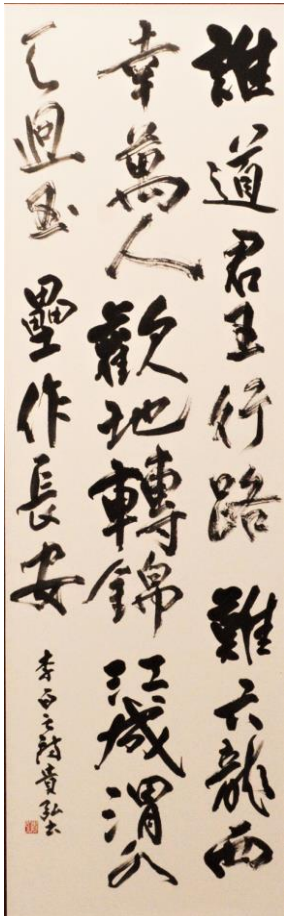 誰道君王行路難六龍西
幸萬人歡地轉錦江成渭水
天迴玉壘作長安
李白之詩貴弘書